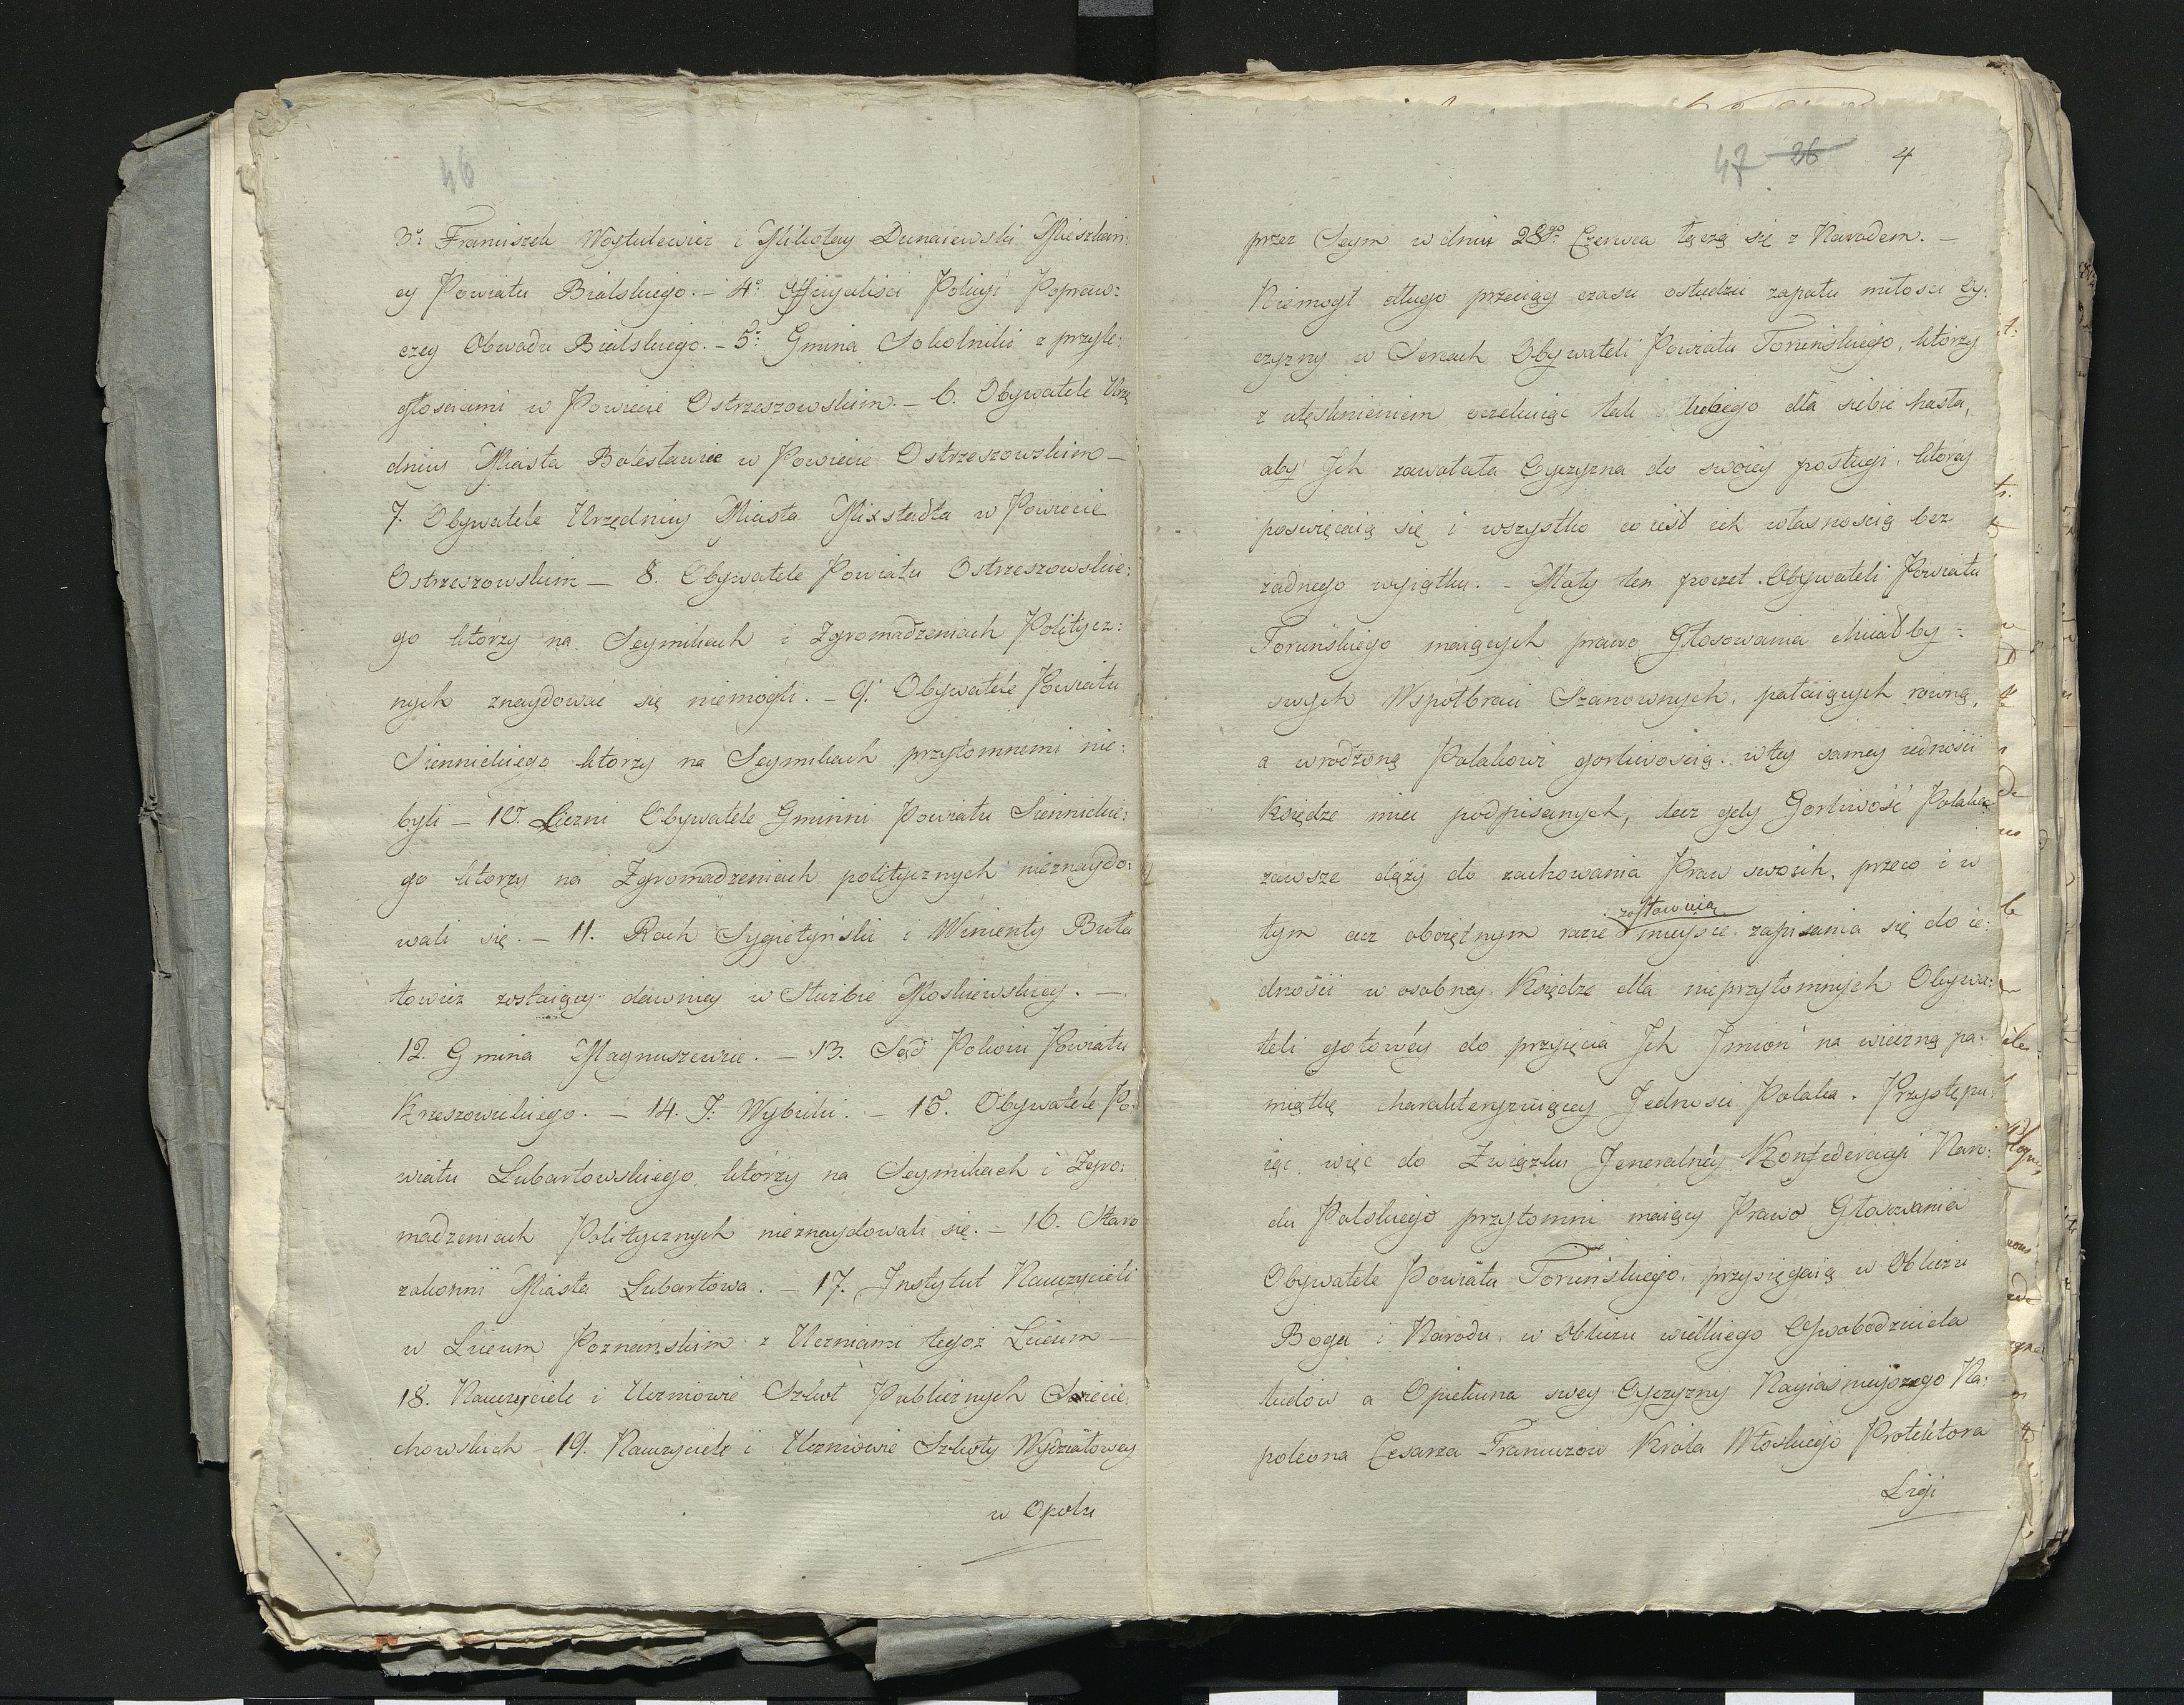 46
3º: Franciszek Woytulewicz i Mikołay Dunaiewski Mieszkań:
cy Powiatu Bialskiego. – 4º: Officyaliści Policyi Popraw:
czey Obwodu Bialskiego. – 5º: Gmina Sokolniki z przyle:
głościami w Powiecie Ostrzeszowskim. – 6. Obywatele Urzę
dnicy Miasta Bolesławiec w Powiecie Ostrzeszowskim –
7. Obywatele Urzędnicy Miasta Mixstadta w Powiecie
Ostrzeszowskim – 8. Obywatele Powiatu Ostrzeszowskie:
go którzy na Seymikach i Zgromadzeniach Politycz:
nych znaydować się niemogli. – 9. Obywatele Powiatu
Siennickiego którzy na Seymikach przytomnemi nie:
byli – 10. Liczni Obywatele Gminni Powiatu Siennickie:
go którzy na Zgromadzeniach politycznych nieznaydo:
wali się. – 11. Roch Sygietyński i Wincenty Buła
towicz zostaiący dawniey w Służbie Moskiewskiey. –
12. Gmina Magnuszewice. – 13. Sąd Pokoiu Powiatu
Krzeszowickiego. – 14. J. Wybicki. – 15. Obywatele Po:
wiatu Lubartowskiego, którzy na Seymikach i Zgro:
madzeniach Politycznych nieznaydowali się. – 16. Staro
zakonni Miasta Lubartowa. – 17. Instytut Nauczycieli
w Liceum Poznańskim z Uczniami tegoż Liceum –
18. Nauczyciele i Uczniowie Szkół Publicznych Sieciec:
chowskich – 19. Nauczyciele i Uczniowie Szkoły Wydziałowey
w Opolu
47 26 4
przez Seym w dniu 28go Czerwca łączą się z Narodem. –
Niemógł długo przeciąg czasu ostudzić zapału miłości Oy:
czyzny w Sercach Obywateli Powiatu Toruńskiego, którzy
z utęsknieniem oczekuiąc tak lubego dla siebie hasła,
aby Ich zawołała Oyczyzna do swóiey posługi, któréy
poswięcaią się i wszystko co iest ich własnoscią bez
żadnego wyiątku. – Mały ten poczet Obywateli Powiatu
Toruńskiego maiących prawo Głosowania chciałby
swych Współbraci Szanownych, pałaiących równą,
a wrodzoną Polakowi gorliwoscią, w tey samey iedności
Księdze mieć podpisanych, lecz gdy Gorliwość Polaka
zawsze dąży do zachowania Praw swoich, przeco i w
tym acz oboiętnym razie zostawuią mieysce zapisania się do ie:
dności w osobney Księdze dla nieprzytomnych Obywa:
teli gotowéy do przyięcia Ich Imion na wieczną pa:
miątkę charakteryzuiącey Jedności Polaka. Przystępu:
iąc więc do Związku Jeneralnéy Konfederacyi Naro:
du Polskiego przytomni maiący Prawo Głosowania
Obywatele Powiatu Toruńskiego, przysięgaią w Obliczu
Boga i Narodu, w Obliczu wielkiego Oswobodziciela
ludów a Opiekuna swey Oyczyzny Nayiaśnieyszego Na:
poleona Cesarza Francuzow Króla Włoskiego Protektora
Ligi